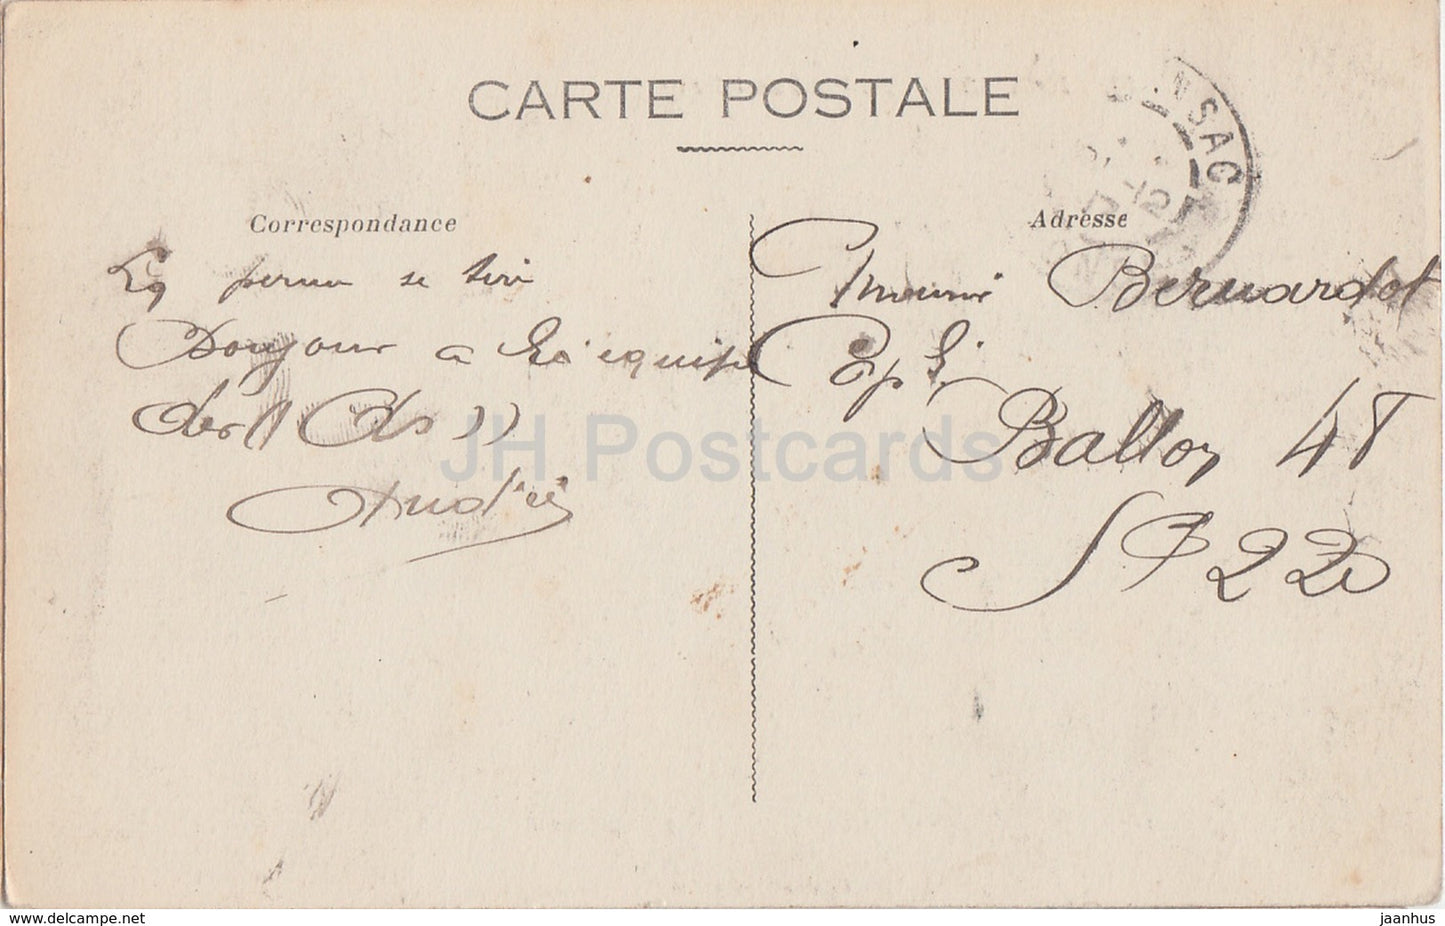 CARTE POSTALE
NSAC
Correspondance
La perm se tire
Bonjour a la équipe
des "As"
André
Adresse
Bernardot
Cap l.
Ballon 48
SP 22
JH Postcards
www.delcampe.net
jaanhus